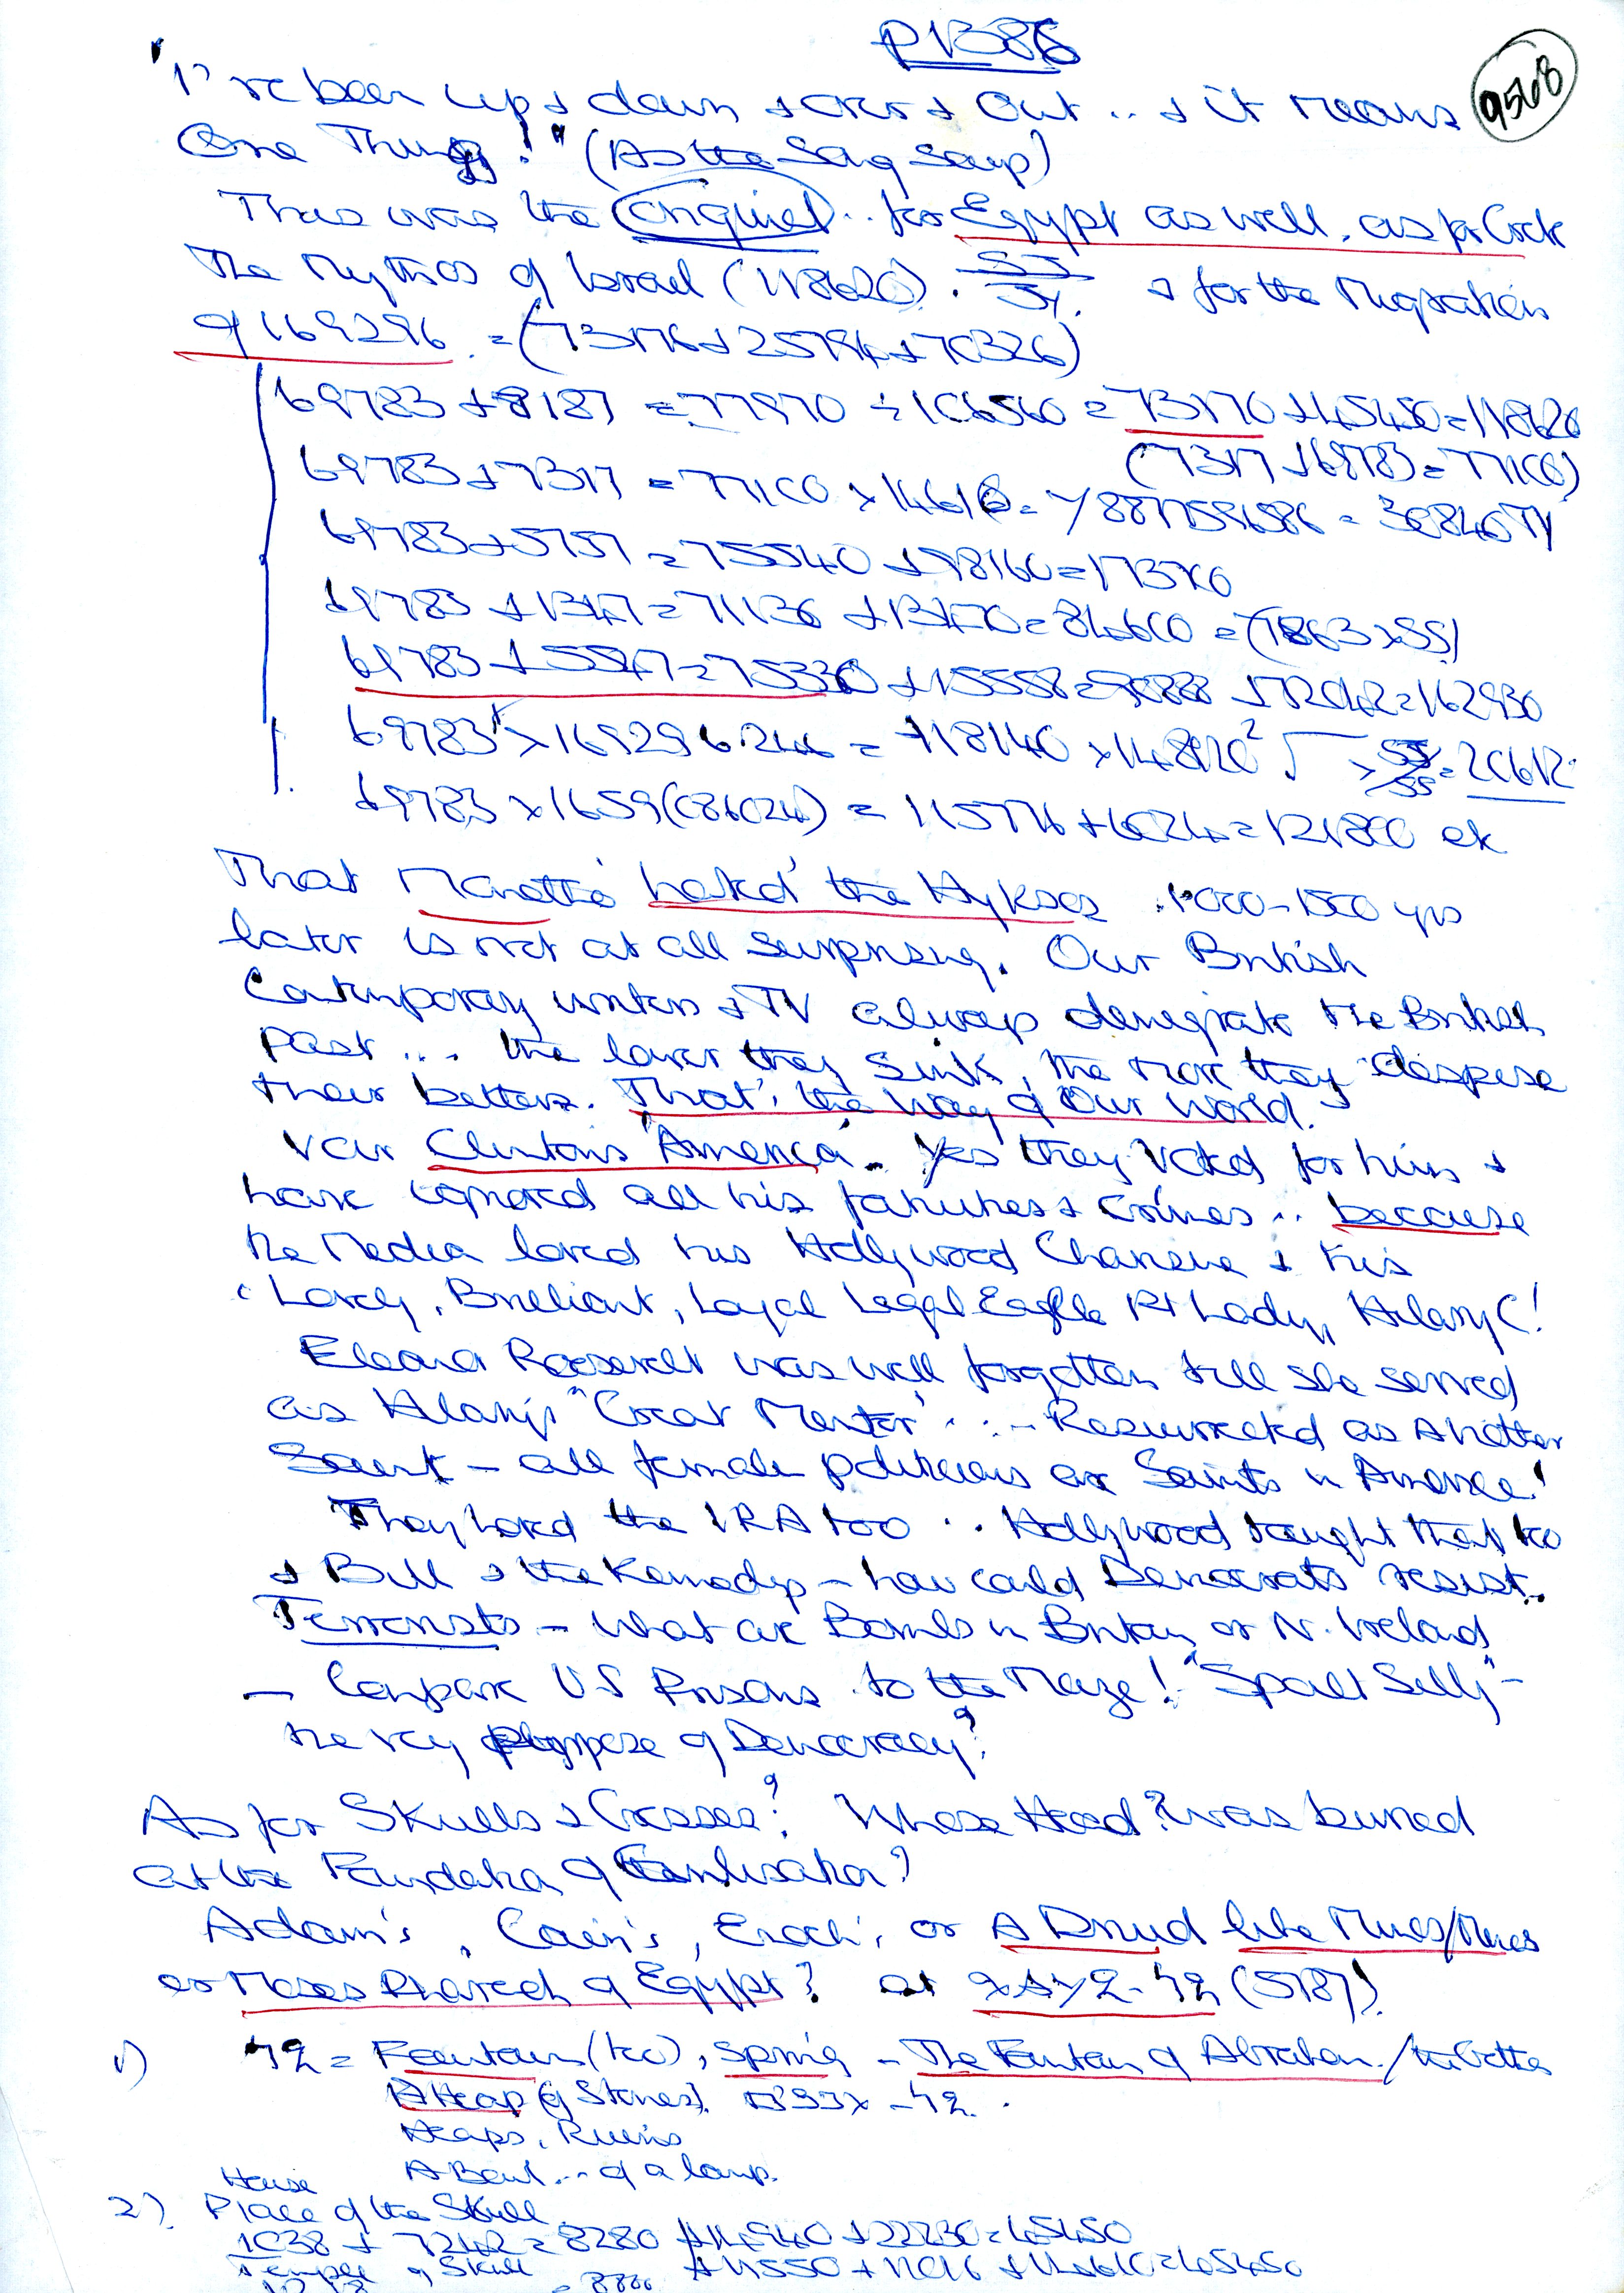 P1386
9568
"I've been up & down & over & out .. & it means
One Thing!" (As the Song Says)
That was the original .. for Egypt as well, as for Crete
The Mythos of Israel (118620). & for the Migration
of 169296 = (73176+25794+70326)
69783 + 8187 = 77970 ÷ 106560 = 73170 + 45450 = 118620
(7317 + 69783 = 77100)
69783 + 7317 = 77100 × 14616 =
69783 + 5757 = 75540 + 98160 = 173700
69783 + 1347 = 71130 + 13470 = 84600 =
69783 + 5547 = 75330 + 15558 = 90888 + 72042 = 162930
69783 × 169296.244 = 118140 × 148120² √ = 20612
69783 × 1659(086024) = 115776 + 6024 = 121800 etc
That Manetho 'hated' the Hyksos 1000-1500 yrs
later is not at all surprising. Our British
Contemporary writers & TV always denegrate the British
Past ... the lower they sink, the more they despise
their betters. That's the way of Our World.
Clinton's 'America'. Yes they voted for him &
have ignored all his failures & crimes .. because
the Media loved his Hollywood Charisma & his
'Lovely, Brilliant, Loyal Legal Eagle Lady, Hilary C!
Eleanor Roosevelt was well forgotten till she served
as Hilary's "Great Mentor" ... Resurrected as Another
Saint - all female politicians are Saints in America!
They loved the IRA too .. Hollywood taught that too
& Bill & the Kennedys - how could Democrats resist.
Terrorists - what are Bombs in Britain or N. Ireland
- Compare US Prisons to the Maze! "Spoilt Silly" -
the very purpose of Democracy?
As for Skulls & Crosses? Whose Head? was buried
at the Foundation of Civilisation?
Adam's, Cain's, Enoch's, or A Druid like Minos/Menes
or Moses Pharaoh of Egypt? at (5187).
1) = Fountain (too), Spring - The Fountain of Abraham /
A Heap (of Stones).
Heaps, Ruins
A Bowl ... of a lamp.
House
2) Place of the Skull
1038 + 7242 = 8280 + 14940 + 22230 = 45450
Temple of Skull